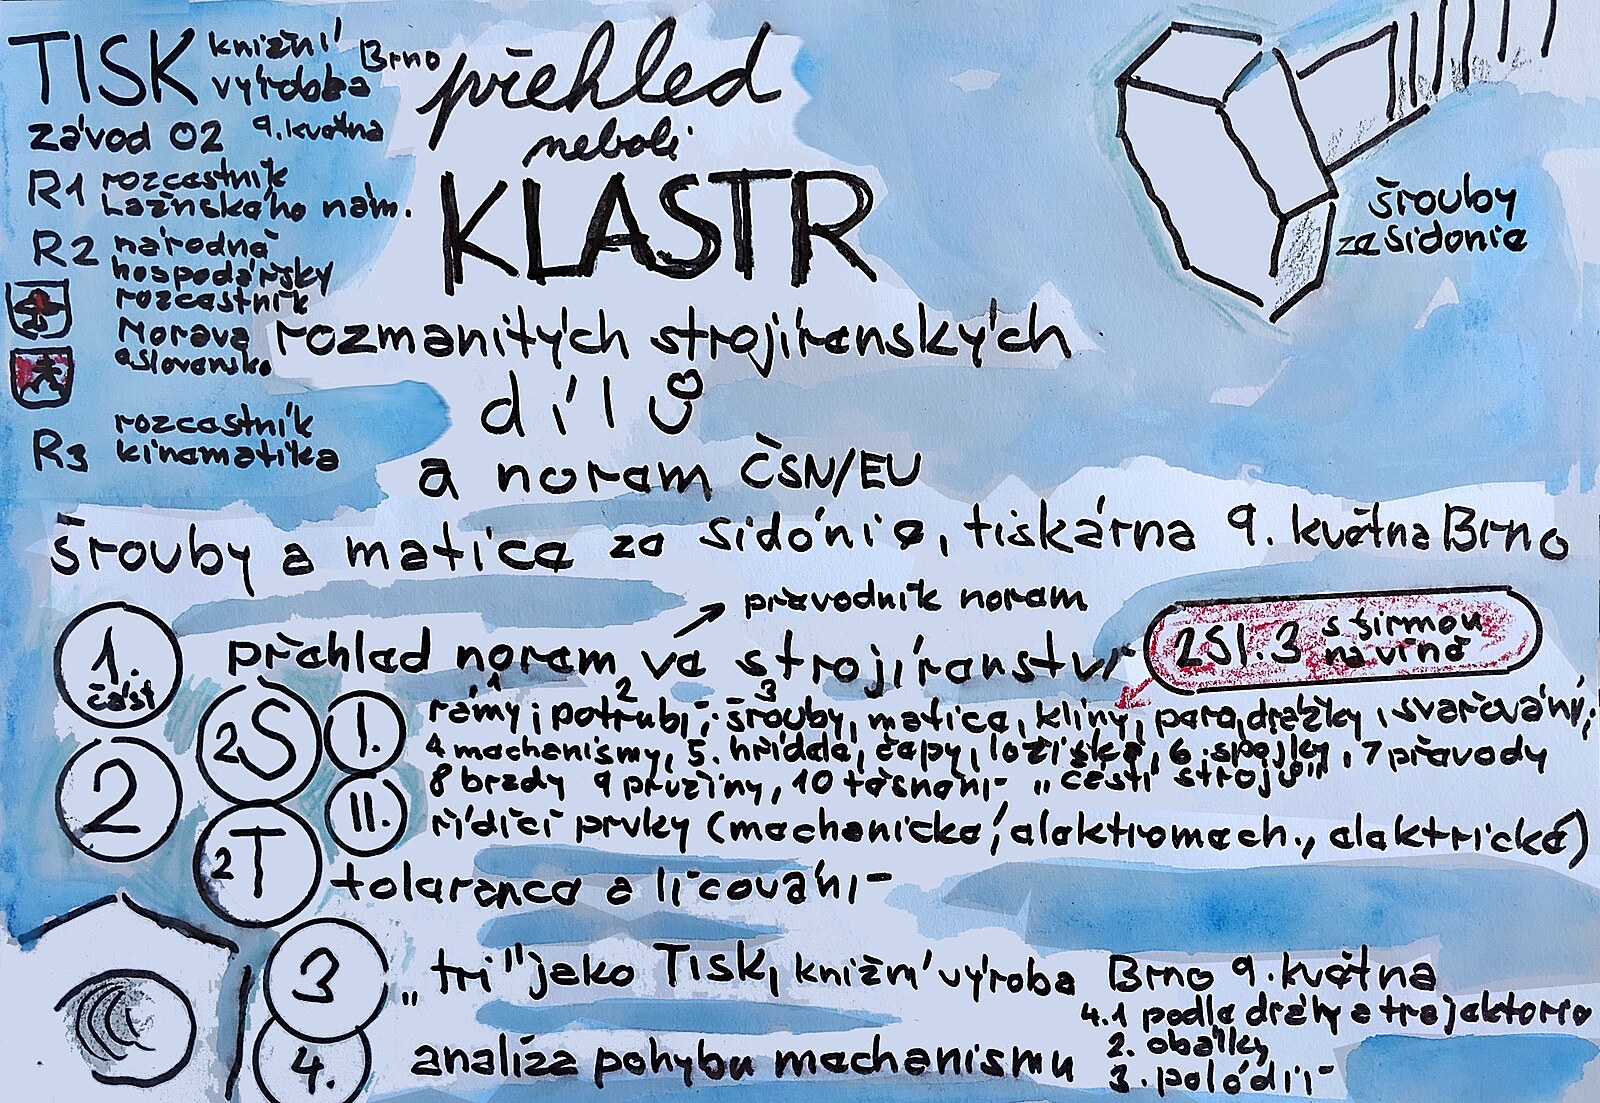 TISK knižní výroba Brno
závod 02 9. května
R1 rozcestník
Lažnského nám.
R2 národně
hospodářský
rozcestník
Morava
a slovensko
R3 rozcestník
kinematika
přehled
neboli
KLASTR
rozmanitých strojírenských
dílů
a norem ČSN/EU
šrouby
ze Sidonie
šrouby a matice ze Sidónie, tiskárna 9. května Brno
1. část
průvodník norem
přehled norem ve strojírenství
2SI.3 s firmou
na víně
2
2S
I.
1 2 3
rámy; potrubí; šrouby, matice, klíny, pera, drážky, svařování;
4 mechanismy, 5. hřídele, čepy, ložiska, 6. spojky, 7 převody
8 brzdy 9 pružiny, 10 těsnění- „části strojů"
II.
řídící prvky (mechanické, elektromech., elektrické)
2T
tolerance a lícování-
3
„tři" jako Tisk, knižní výroba Brno 9. května
4.
analíza pohybu mechanismu
4.1 podle dráhy a trajektorie
2. obálky
3. polódií-